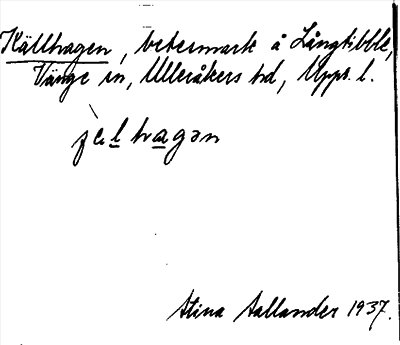 Källhagen, betesmark å Långtibble,
Vänge sn, Ulleråkers hd, Upps. l.
çe̱l ha̱gən
Stina Aallander 1937.